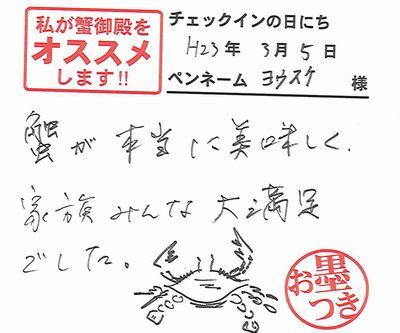 私が蟹御殿を
オススメ
します!!
チェックインの日にち
H23年 3月 5日
ペンネーム ヨウスケ 様
蟹が本当に美味しく、
家族みんな大満足
でした。
お墨つき